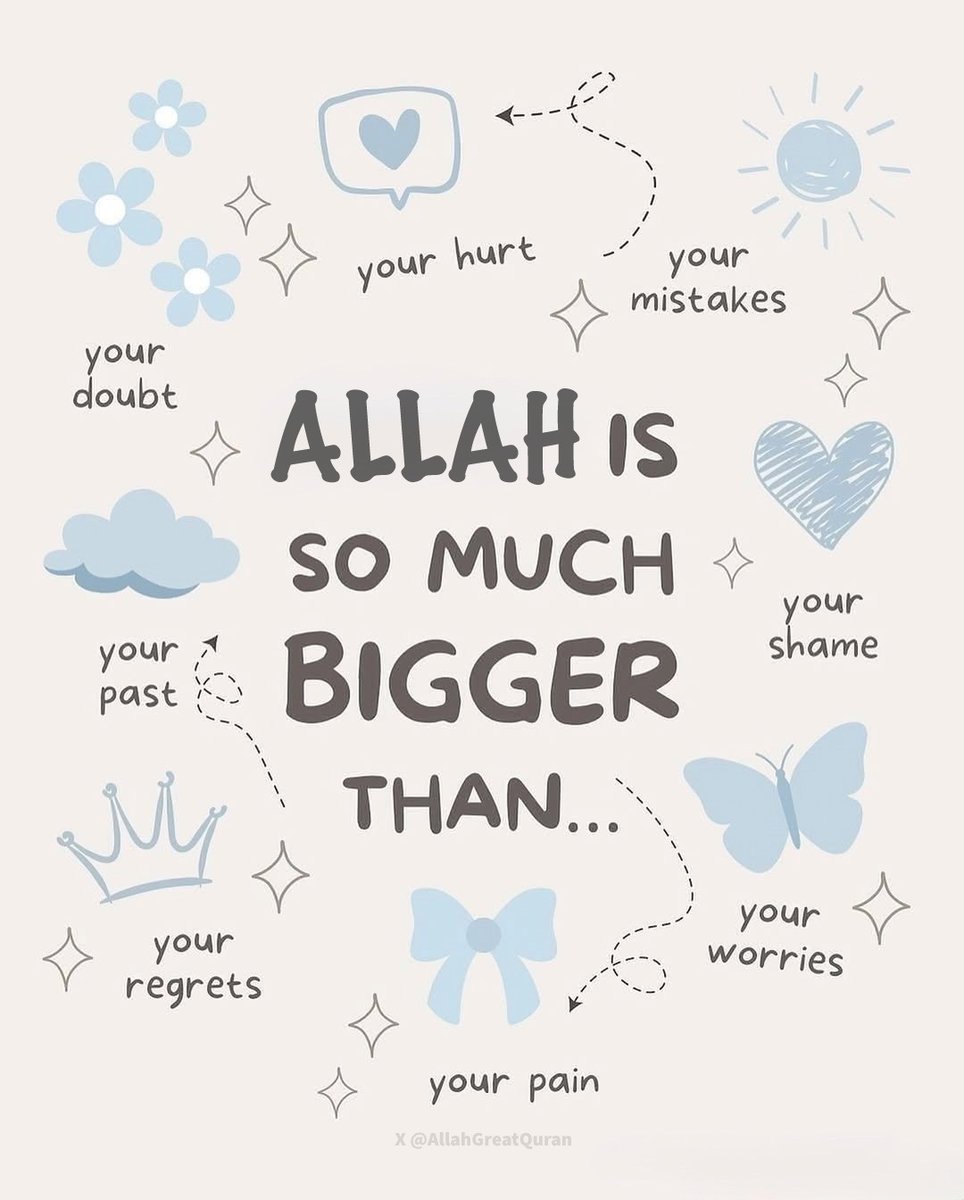 your hurt
your
mistakes
your
doubt
ALLAH IS
SO MUCH
BIGGER
THAN...
your
shame
your
past
your
worries
your
regrets
your pain
X @AllahGreatQuran